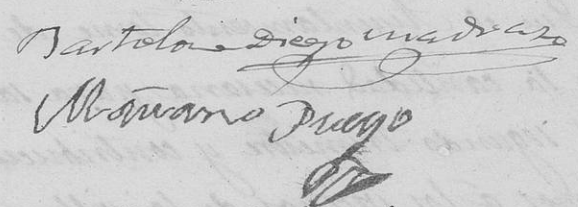 Bartolome Diego Madrazo
Mariano Diego